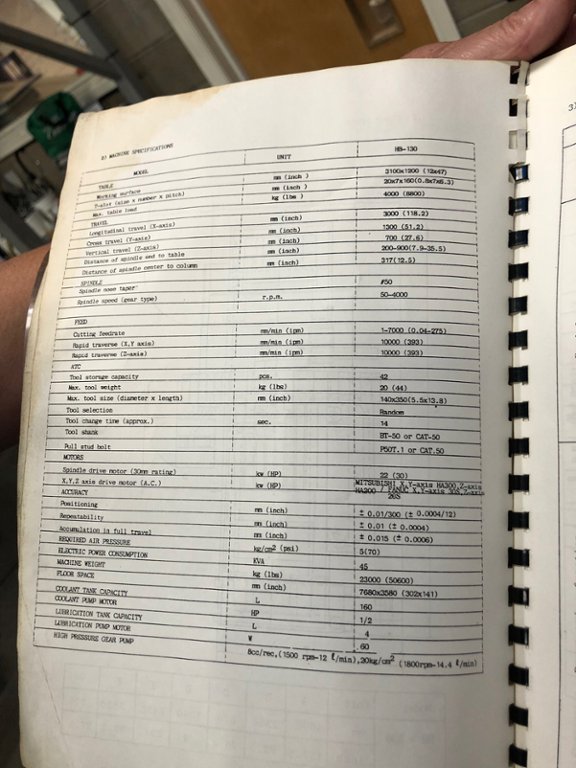 B) MACHINE SPECIFICATIONS
MODEL UNIT HB-130
TABLE
Working surface mm (inch ) 3100x1200 (12x47)
T-slot (size x number x pitch) mm (inch ) 20x7x160(0.8x7x6.3)
Max. table load kg (lbs ) 4000 (8800)
TRAVEL
Longitudinal travel (X-axis) mm (inch) 3000 (118.2)
Cross travel (Y-axis) mm (inch) 1300 (51.2)
Vertical travel (Z-axis) mm (inch) 700 (27.6)
Distance of spindle end to table mm (inch) 200-900(7.9-35.5)
Distance of spindle center to column mm (inch) 317(12.5)
SPINDLE
Spindle nose taper #50
Spindle speed (gear type) r.p.m. 50-4000
FEED
Cutting feedrate mm/min (ipm) 1-7000 (0.04-275)
Rapid traverse (X,Y axis) mm/min (ipm) 10000 (393)
Rapid traverse (Z-axis) mm/min (ipm) 10000 (393)
ATC
Tool storage capacity pcs. 42
Max. tool weight kg (lbs) 20 (44)
Max. tool size (diameter x length) mm (inch) 140x350(5.5x13.8)
Tool selection Random
Tool change time (approx.) sec. 14
Tool shank BT-50 or CAT-50
Pull stud bolt P50T.1 or CAT.50
MOTORS
Spindle drive motor (30mm rating) kw (HP) 22 (30)
X,Y,Z axis drive motor (A.C.) kw (HP) MITSUBISHI X,Y-axis HA300,Z-axis
HA300 / FANUC X,Y-axis 30S,Z-axis
20S
ACCURACY
Positioning mm (inch) ± 0.01/300 (± 0.0004/12)
Repeatability mm (inch) ± 0.01 (± 0.0004)
Accumulation in full travel mm (inch) ± 0.015 (± 0.0006)
REQUIRED AIR PRESSURE kg/cm² (psi) 5(70)
ELECTRIC POWER CONSUMPTION KVA 45
MACHINE WEIGHT kg (lbs) 23000 (50600)
FLOOR SPACE mm (inch) 7680x3580 (302x141)
COOLANT TANK CAPACITY L 160
COOLANT PUMP MOTOR HP 1/2
LUBRICATION TANK CAPACITY L 4
LUBRICATION PUMP MOTOR W 60
HIGH PRESSURE GEAR PUMP 8cc/rec,(1500 rpm-12 ℓ/min),20kg/cm² (1800rpm-14.4 ℓ/min)